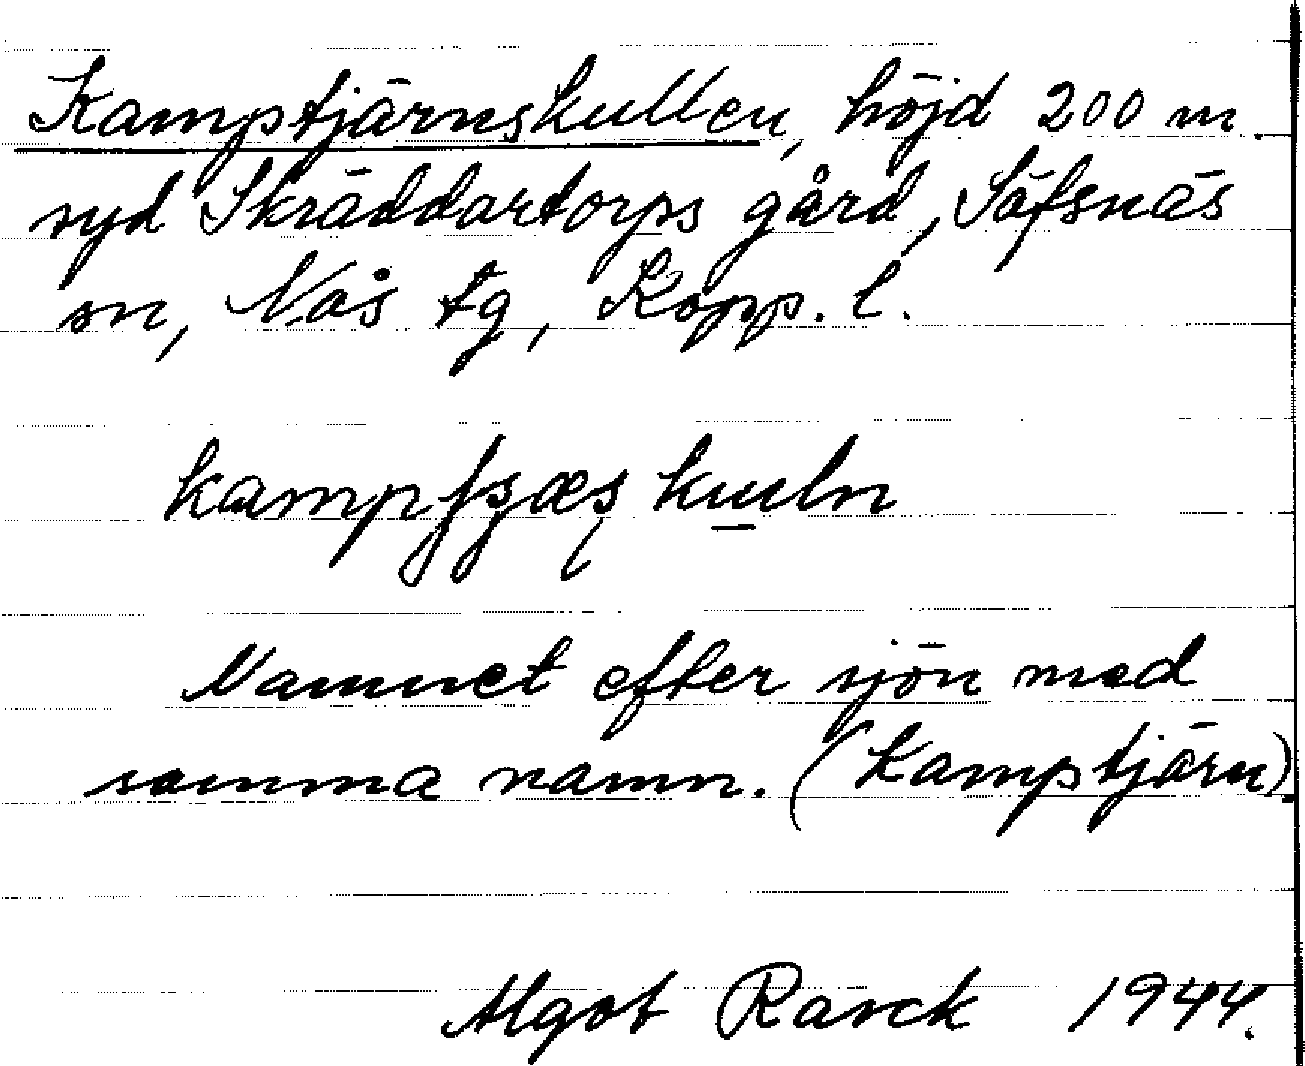 Kamptjärnskullen, höjd 200 m.
syd Skräddartorps gård, Säfsnäs
sn, Nås tg, Kopp. l.
kuuln
Namnet efter sjön med
samma namn. (Kamptjärn).
Algot Rarck 1944.